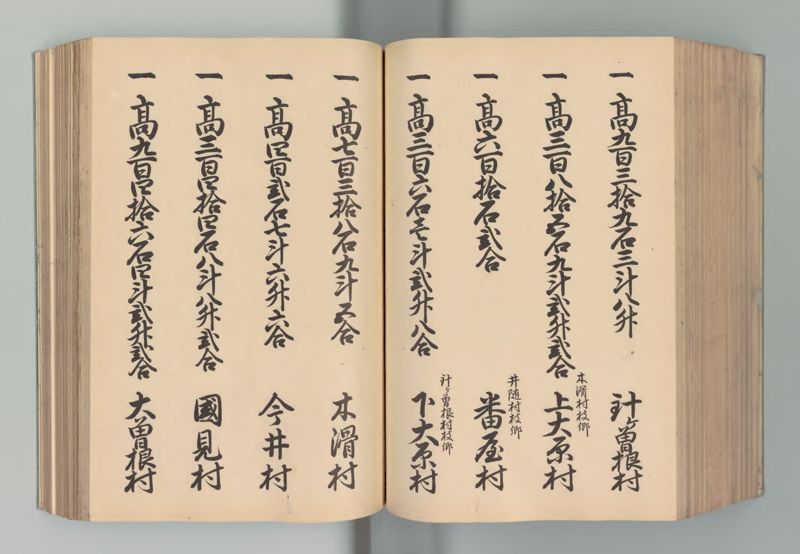 一 高九百三拾九石三斗八升 針ヶ曽根村
木滑村枝郷
一 高三百八拾五石九斗弐升弐合 上大原村
井随村枝郷
一 高六百拾石弐合 番屋村
針ヶ曽根村枝郷
一 高三百六石壱斗弐升八合 下大原村
一 高七百三拾八石九斗五合 木滑村
一 高四百弐石七斗六升六合 今井村
一 高三百四拾四石八斗八升弐合 國見村
一 高九百四拾六石四斗弐升弐合 大曽根村